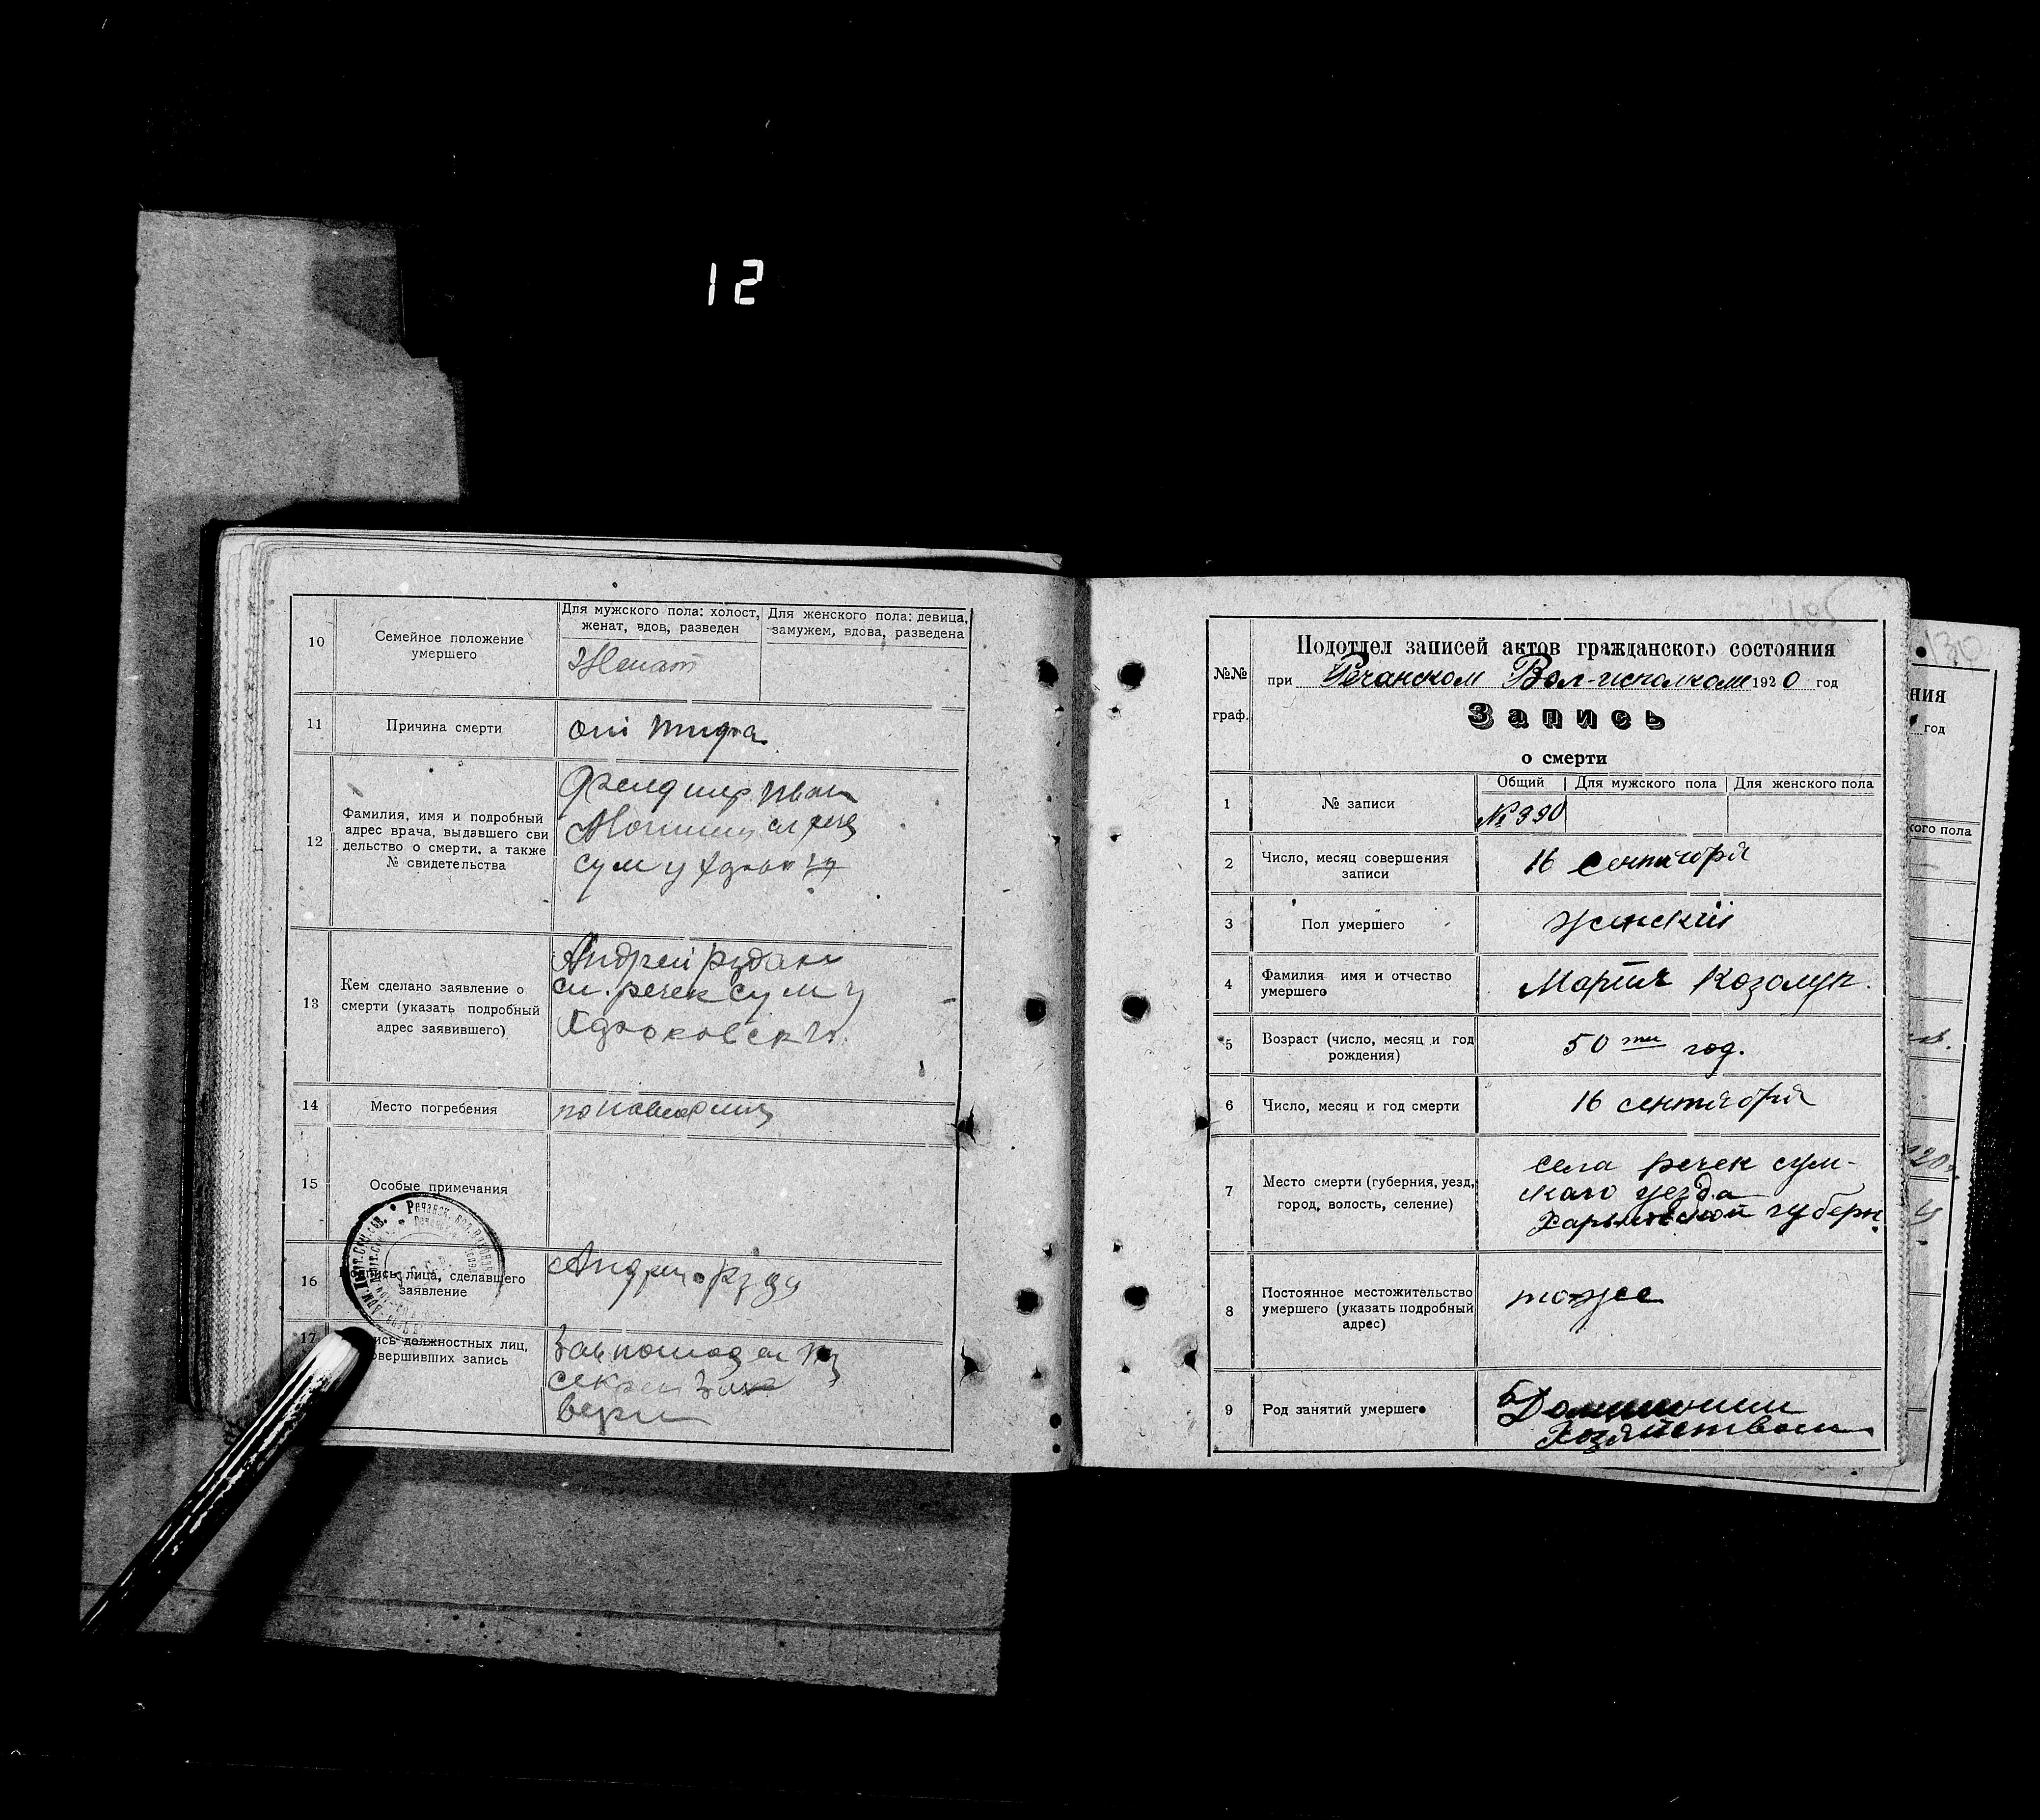 12
10
Семейное положение
умершего
Для мужского пола: холост,
женат, вдов, разведен
Для женского пола: девица,
замужем, вдова, разведена
Женат
11
Причина смерти
от тифа
12
Фамилия, имя и подробный
адрес врача, выдавшего сви
дельство о смерти, а также
№ свидетельства
Фелдшер Иван
13
Кем сделано заявление о
смерти (указать подробный
адрес заявившего)
Андрей
сл. речек сум у
14
Место погребения
15
Особые примечания
16
лица, сделавшего
заявление
17
должностных лиц,
овершивших запись
105
№№
граф.
Подотдел записей актов гражданского состояния
при Речанском Вол-исполкоме 1920 год
Запись
о смерти
1
№ записи
Общий
Для мужского пола
Для женского пола
№ 390
2
Число, месяц совершения
записи
16 сентября
3
Пол умершего
женский
4
Фамилия имя и отчество
умершего
Мария Козолуп.
5
Возраст (число, месяц и год
рождения)
50 ти год.
6
Число, месяц и год смерти
16 сентября
7
Место смерти (губерния, уезд,
город, волость, селение)
села речек сум-
скаго уезда
Харьковской губерн.
8
Постоянное местожительство
умершего (указать подробный
адрес)
тоже
9
Род занятий умершего
Домашним
Хозяйством
130
ния
год
кого пола